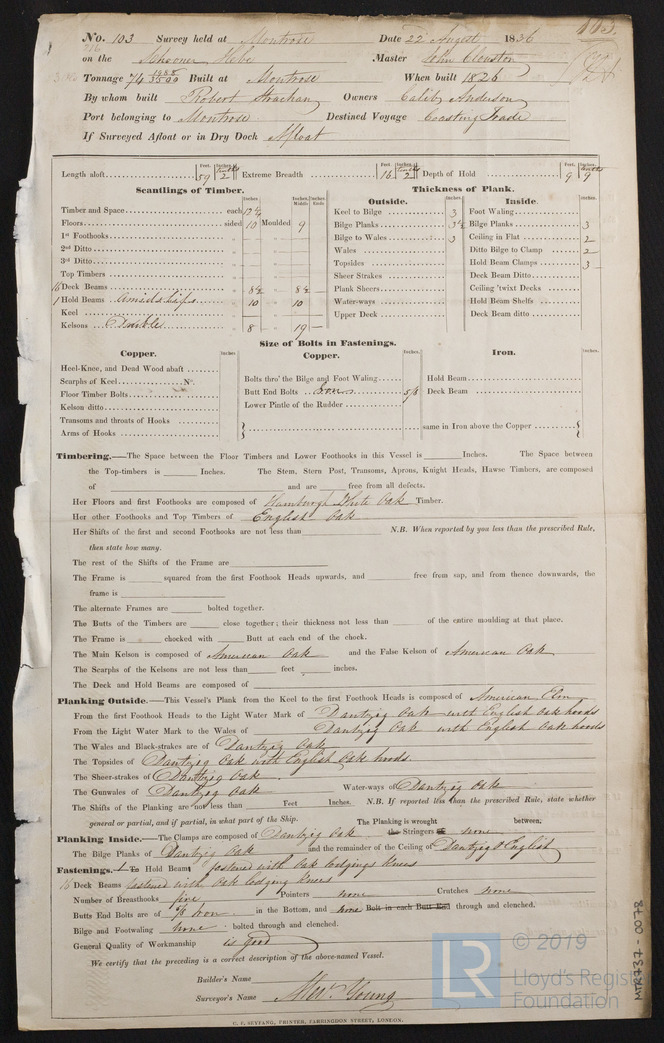 No. 103 Survey held at Montrose Date 22 August 1836
on the Schooner Hebe Master John Clouston
Tonnage 74 Built at Montrose When built 1826
By whom built Robert Strachan Owners Anderson
Port belonging to Montrose Destined Voyage Coasting Trade
If Surveyed Afloat or in Dry Dock Afloat
Length aloft 59 2 Extreme Breadth 16 2 Depth of Hold 9 9
Scantlings of Timber.
Timber and Space each
Floors sided 10 Moulded 9
1st Foothooks
2nd Ditto
3rd Ditto
Top Timbers
Deck Beams 8½ 8½
1 Hold Beams Amidships 10 10
Keel
Kelsons Double 8 19
Thickness of Plank.
Outside.
Keel to Bilge 3
Bilge Planks
Bilge to Wales 3
Wales
Topsides
Sheer Strakes
Plank Sheers
Water-ways
Upper Deck
Inside
Foot Waling
Bilge Planks 3
Ceiling in Flat 2
Ditto Bilge to Clamp 2
Hold Beam Clamps 3
Deck Beam Ditto
Ceiling 'twixt Decks
Hold Beam Shelfs
Deck Beam ditto
Size of Bolts in Fastenings.
Copper.
Heel-Knee, and Dead Wood abaft
Scarphs of Keel No.
Floor Timber Bolts
Kelson ditto
Transoms and throats of Hooks
Arms of Hooks
Copper.
Bolts thro' the Bilge and Foot Waling
Butt End Bolts Iron 5/8
Lower Pintle of the Rudder
Iron.
Hold Beam
Deck Beam
same in Iron above the Copper
Timbering.—The Space between the Floor Timbers and Lower Foothooks in this Vessel is Inches. The Space between
the Top-timbers is Inches. The Stem, Stern Post, Transoms, Aprons, Knight Heads, Hawse Timbers, are composed
of and are free from all defects.
Her Floors and first Foothooks are composed of Hamburgh White Oak Timber.
Her other Foothooks and Top Timbers of English Oak
Her Shifts of the first and second Foothooks are not less than N.B. When reported by you less than the prescribed Rule,
then state how many.
The rest of the Shifts of the Frame are
The Frame is squared from the first Foothook Heads upwards, and free from sap, and from thence downwards, the
frame is
The alternate Frames are bolted together.
The Butts of the Timbers are close together; their thickness not less than of the entire moulding at that place.
The Frame is chocked with Butt at each end of the chock.
The Main Kelson is composed of American Oak and the False Kelson of American Oak
The Scarphs of the Kelsons are not less than feet inches.
The Deck and Hold Beams are composed of
Planking Outside.—This Vessel's Plank from the Keel to the first Foothook Heads is composed of American Elm
From the first Foothook Heads to the Light Water Mark of Dantzig Oak with English Oak hoods
From the Light Water Mark to the Wales of Dantzig Oak with English Oak hoods
The Wales and Black-strakes are of Dantzig Oak
The Topsides of Dantzig Oak with English Oak hoods
The Sheer-strakes of Dantzig Oak
The Gunwales of Dantzig Oak Water-ways of Dantzig Oak
The Shifts of the Planking are not less than Feet Inches. N.B. If reported less than the prescribed Rule, state whether
general or partial, and if partial, in what part of the Ship. The Planking is wrought between.
Planking Inside.—The Clamps are composed of Dantzig Oak the Stringers none
The Bilge Planks of Dantzig Oak and the remainder of the Ceiling of Dantzig & English
Fastenings. 1 Hold Beam fastened with Oak lodging knees
Deck Beams fastened with Oak lodging knees
Number of Breasthooks five Pointers none Crutches none
Butts End Bolts are of 5/8 Iron in the Bottom, and none Bolt in each Butt End through and clenched.
Bilge and Footwaling none bolted through and clenched.
General Quality of Workmanship is good
We certify that the preceding is a correct description of the above-named Vessel.
Builder's Name
Surveyor's Name Thos. Young
C. F. SEYFANG, PRINTER, FARRINGDON STREET, LONDON.
MTR737-0078
LR
© 2019
Lloyd's Register
Foundation